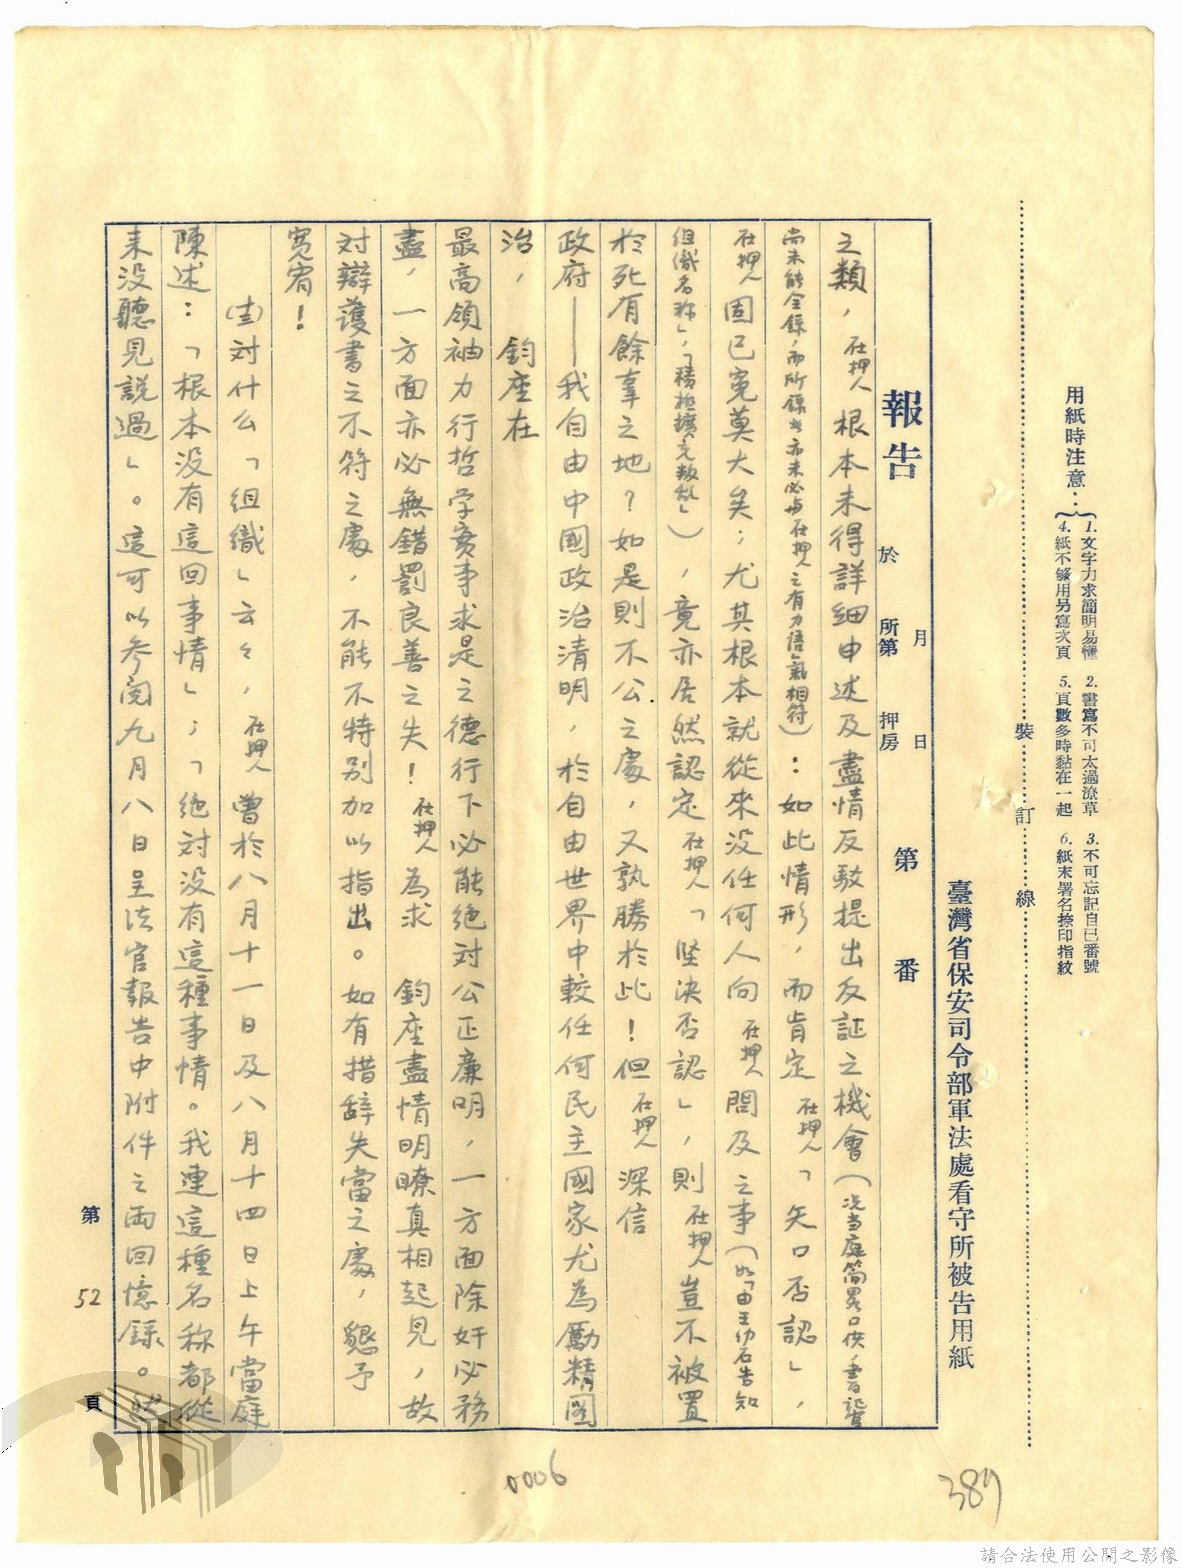 用紙時注意：
1. 文字力求簡明易懂 2. 書寫不可太過潦草 3. 不可忘記自己番號
4. 紙不够用另寫次頁 5. 頁數多時黏在一起 6. 紙末署名捺印指紋
裝 訂 線
臺灣省保安司令部軍法處看守所被告用紙
報告 於 月 日 所第 押房 第 番
之類，在押人根本未得詳細申述及盡情反駁提出反証之機會（況當庭簡畧口供，書記官
尚未能全錄，而所錄者亦未必与在押人之有力語氣相符）：如此情形，而肯定在押人「矢口否認」，
在押人固已冤莫大矣；尤其根本就從來没任何人向在押人問及之事（如「由王仍石告知
組織名称」，「積極擴充叛亂」），竟亦居然認定在押人「堅決否認」，則在押人豈不被置
於死有餘辜之地？如是則不公之處，又孰勝於此！但在押人深信
政府——我自由中國政治清明，於自由世界中較任何民主國家尤為勵精圖
治， 鈞座在
最高領袖力行哲学實事求是之德行下必能絶对公正廉明，一方面除奸必務
盡，一方面亦必無錯罰良善之失！在押人為求 鈞座盡情明瞭真相起見，故
対辯護書之不符之處，不能不特别加以指出。如有措辞失當之處，懇予
寬宥！
対什么「組織」云々，在押人曽於八月十一日及八月十四日上午當庭
陳述：「根本没有這回事情」；「絶対没有這種事情。我連這種名称都從
来没聽見説過」。這可以參閲九月八日呈法官報告中附件之兩回憶録。
第 52 頁
0006
387
請合法使用公開之影像